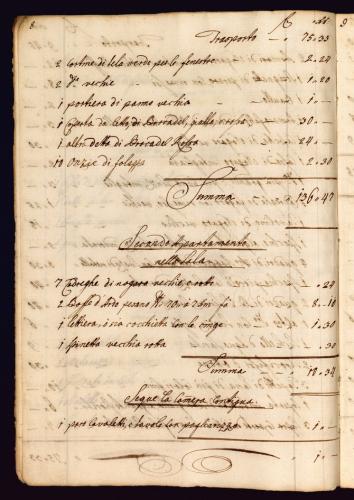 8
Trasporto - 75.33
2 Cortine di tela verde per le fenestre 2.24
2 d.e vechie 1.20
1 portiera di panno vechia 1.-
1 Coperta da letto di Brocadel, gialla, e rossa 30.-
1 altra detta di Brocadel Rossa 24.-
10 onzze di 2.30
Summa 136.47
Secondo Apartamento
nella Sala
7 Cadreghe di nogara vechie, e rotte -.24
2 di pesano 70 8.-10
1 lettiera, ò sia cocchietta con le cinge 1.30
1 spinetta vechia rotta -.30
Summa 10.34
Segue la Camera Contigua.
1 paro cavaletti, e tavole con pagliarizzo 1.-